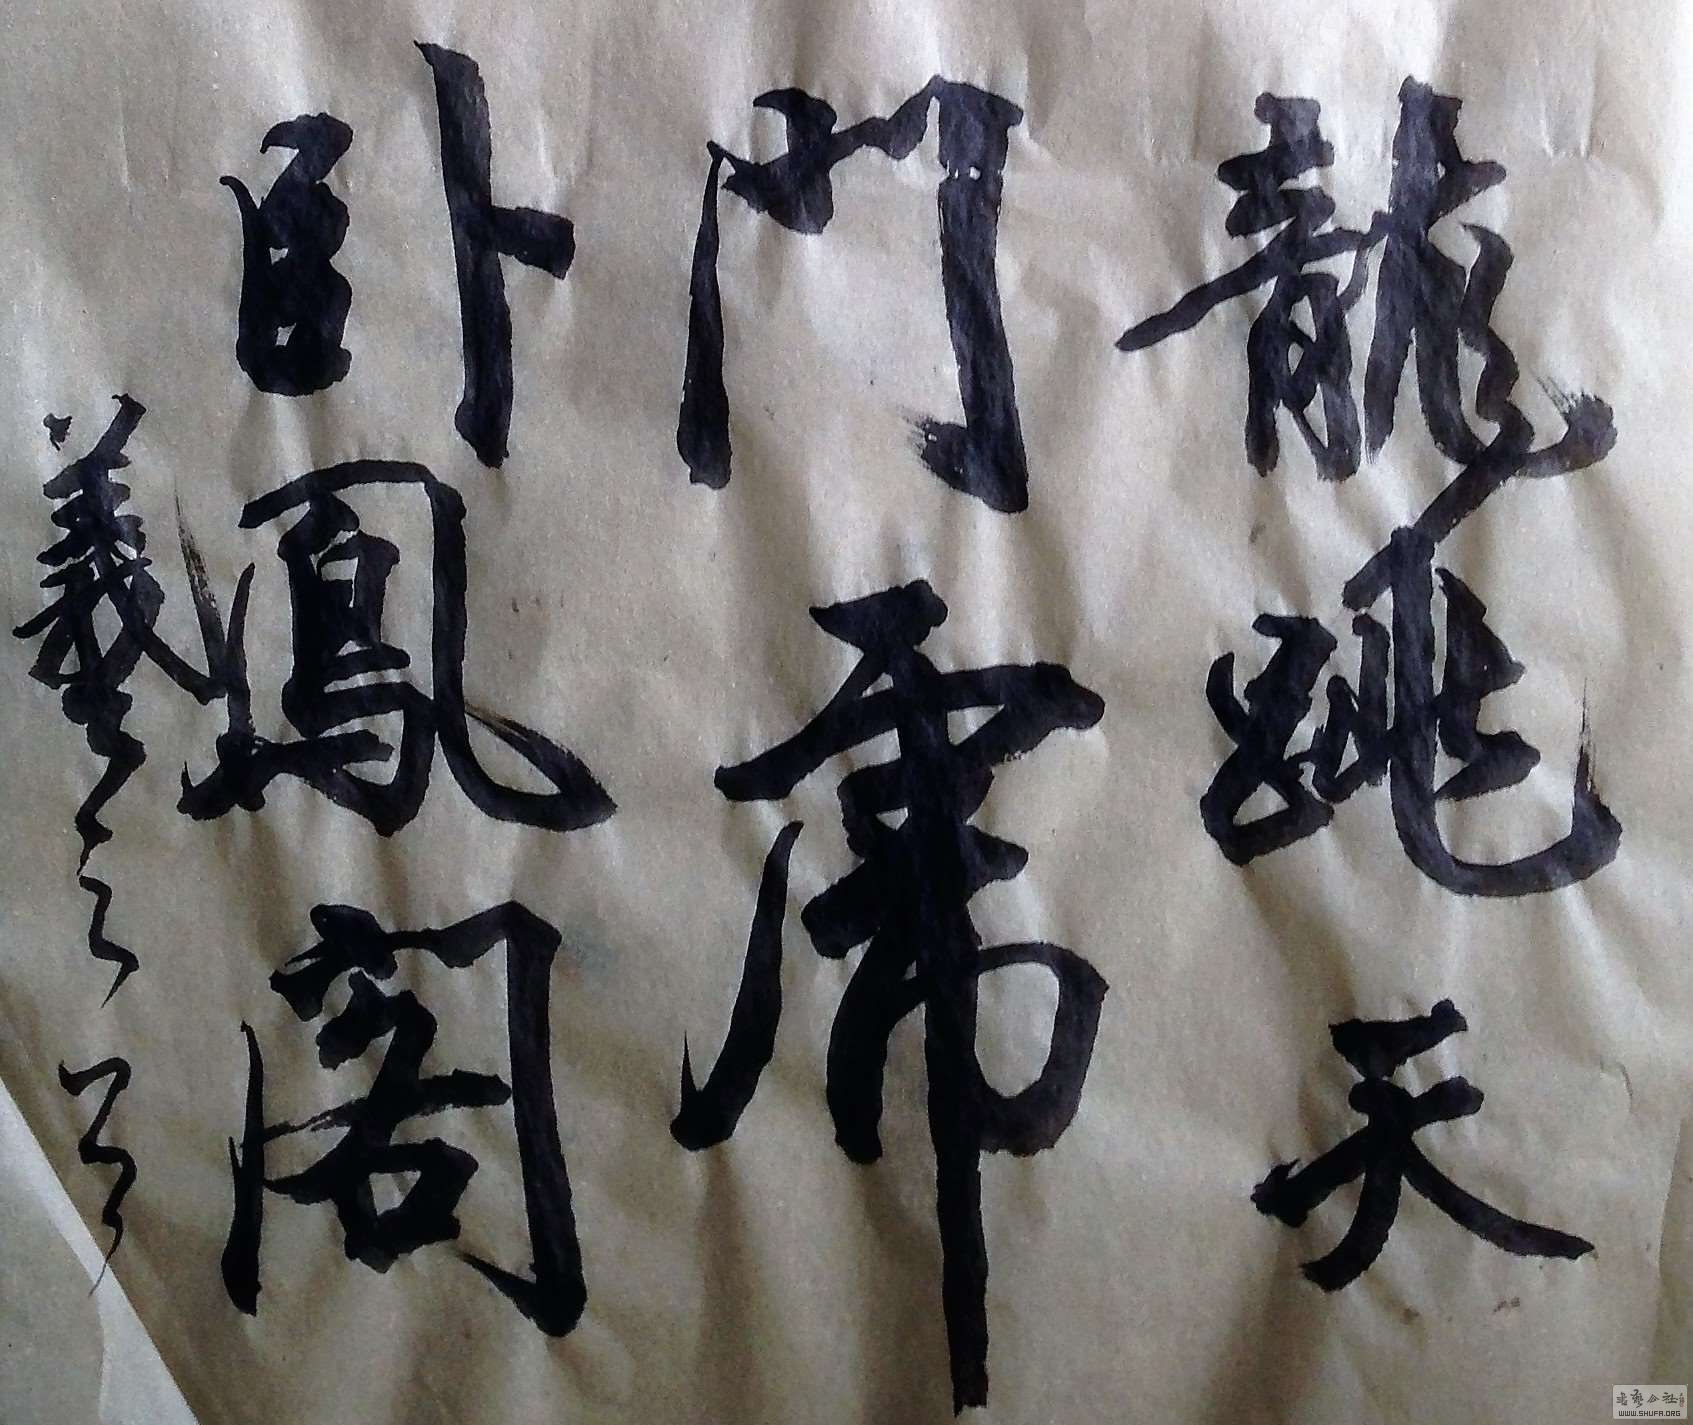 龍跳天
門虎
卧鳳閣
羲之
书艺公社
WWW.SHUFA.ORG